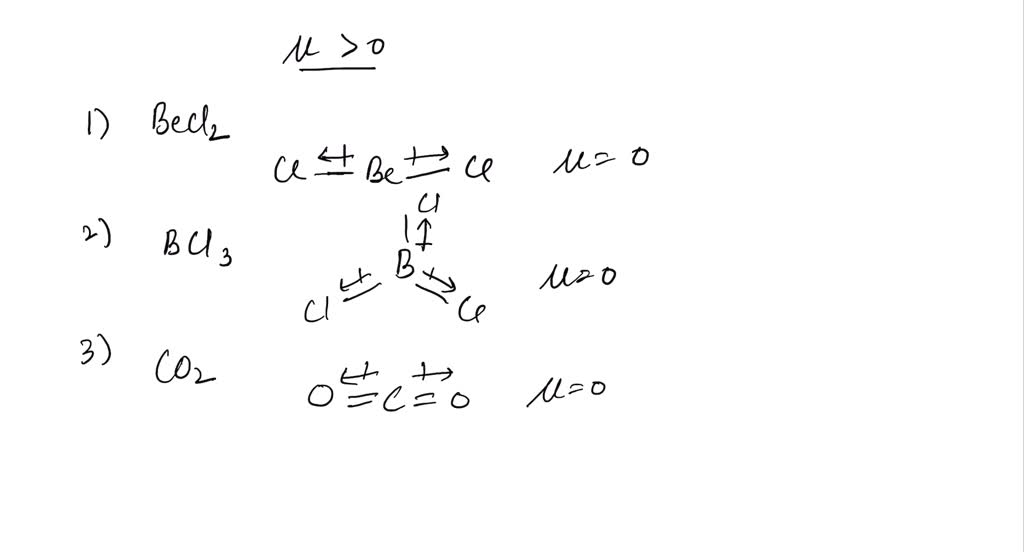 μ > 0
1) BeCl2
Cl Be Cl μ = 0
Cl
2) BCl3
B μ = 0
Cl Cl
3) CO2
O = C = O μ = 0